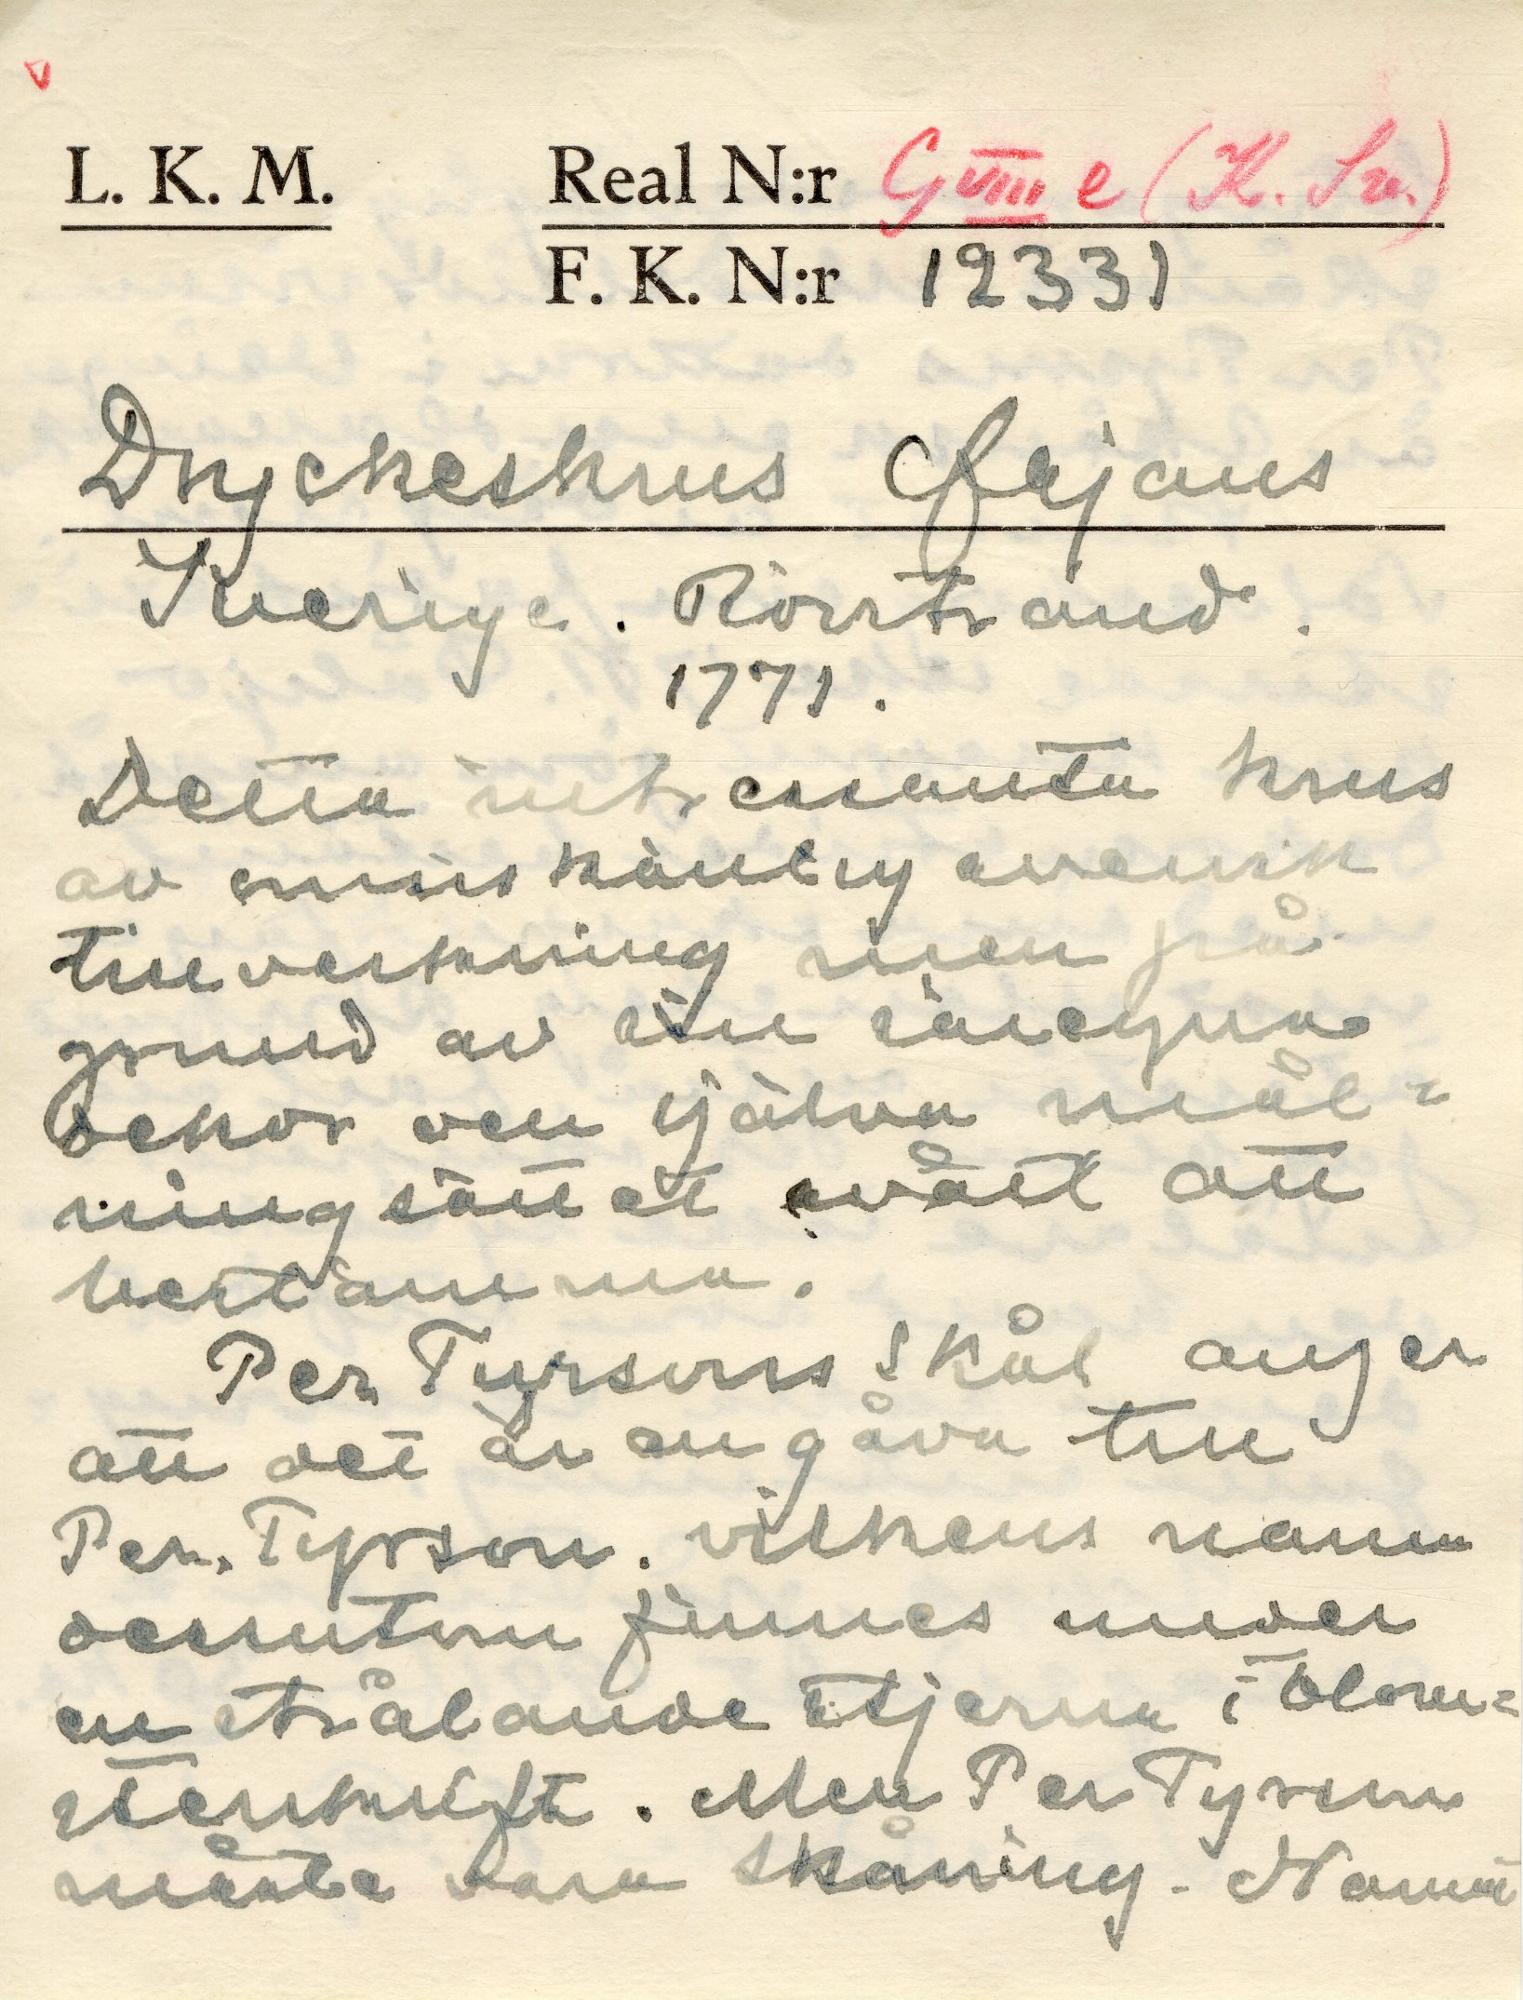 L. K. M. Real N:r G VIII e (K. Sv.)
F. K. N:r 12331
Dryckeskrus Fajans
Sverige. Rörstrand.
1771.
Detta intressanta krus
av omisskänlig svensk
tillverkning men på
grund av sin säregna
dekor den själva mål-
ningsättet svårt att
bestämma.
Per Tyrsons Skål anger
att det är en gåva till
Per. Tyrson. vilkens namn
dessutom finnes under
en strålande stjerna i blom-
sterskrift. Men Per Tyrson
måste vara skåning. Namn